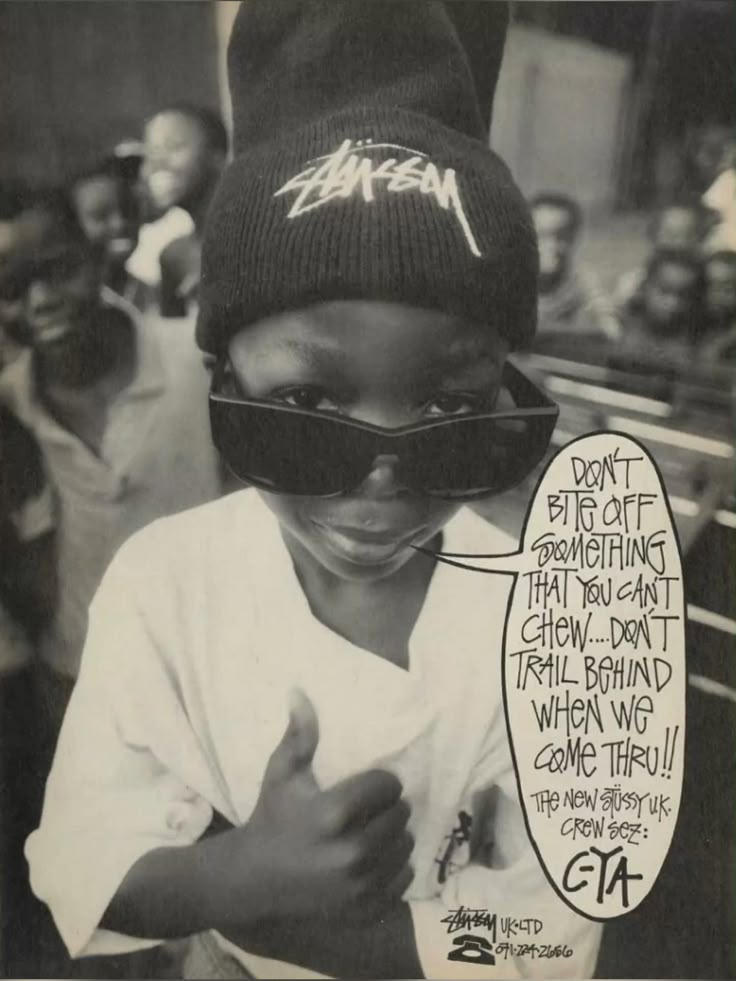 Stüssy
DON'T
BITE OFF
SOMETHING
THAT YOU CAN'T
CHEW....DON'T
TRAIL BEHIND
WHEN WE
COME THRU!!
THE NEW STÜSSY U.K.
CREW SEZ:
C-YA
Stüssy UK•LTD
071•224•2656